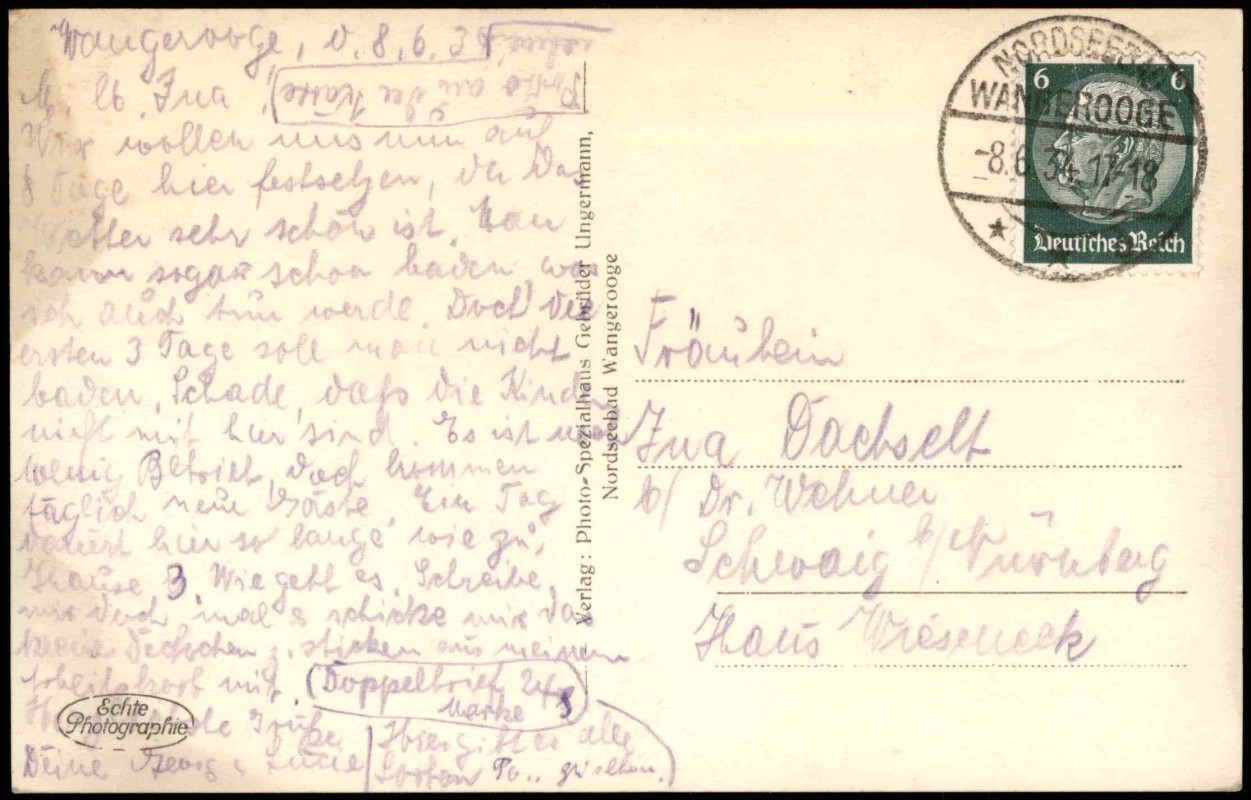 Wangerooge, d. 8.6.34
M. lb. Ina,
Wir wollen uns nun auf
8 Tage hier festsetzen, da das
Wetter sehr schön ist. Man
kann sogar schon baden, was
ich auch tun werde. Doch die
ersten 3 Tage soll man nicht
baden. Schade, dafs die Kinder
nicht mit hier sind. Es ist
wenig Betrieb, doch kommen
täglich neue Gäste. Ein Tag
dauert hier so lange wie zu
Hause 3. Wie geht es. Schreibe
mir doch mal & schicke mir das
Deckchen z. sticken aus meinem
Arbeitskorb mit. (Doppelbrief 24
Marke)
Grüße
Deine Georg & Lucie
Hier gibt es alle
Sorten
Porto an der Karte
NORDSEEBAD
WANGEROOGE
-8.6.34. 17-18
6 6
Deutsches Reich
Verlag: Photo-Spezialhaus Gebrüder Ungermann,
Nordseebad Wangerooge
Fräulein
Ina Dachselt
b/ Dr. Wehner
Schwaig b/Nürnberg
Haus Wieseneck
Echte
Photographie